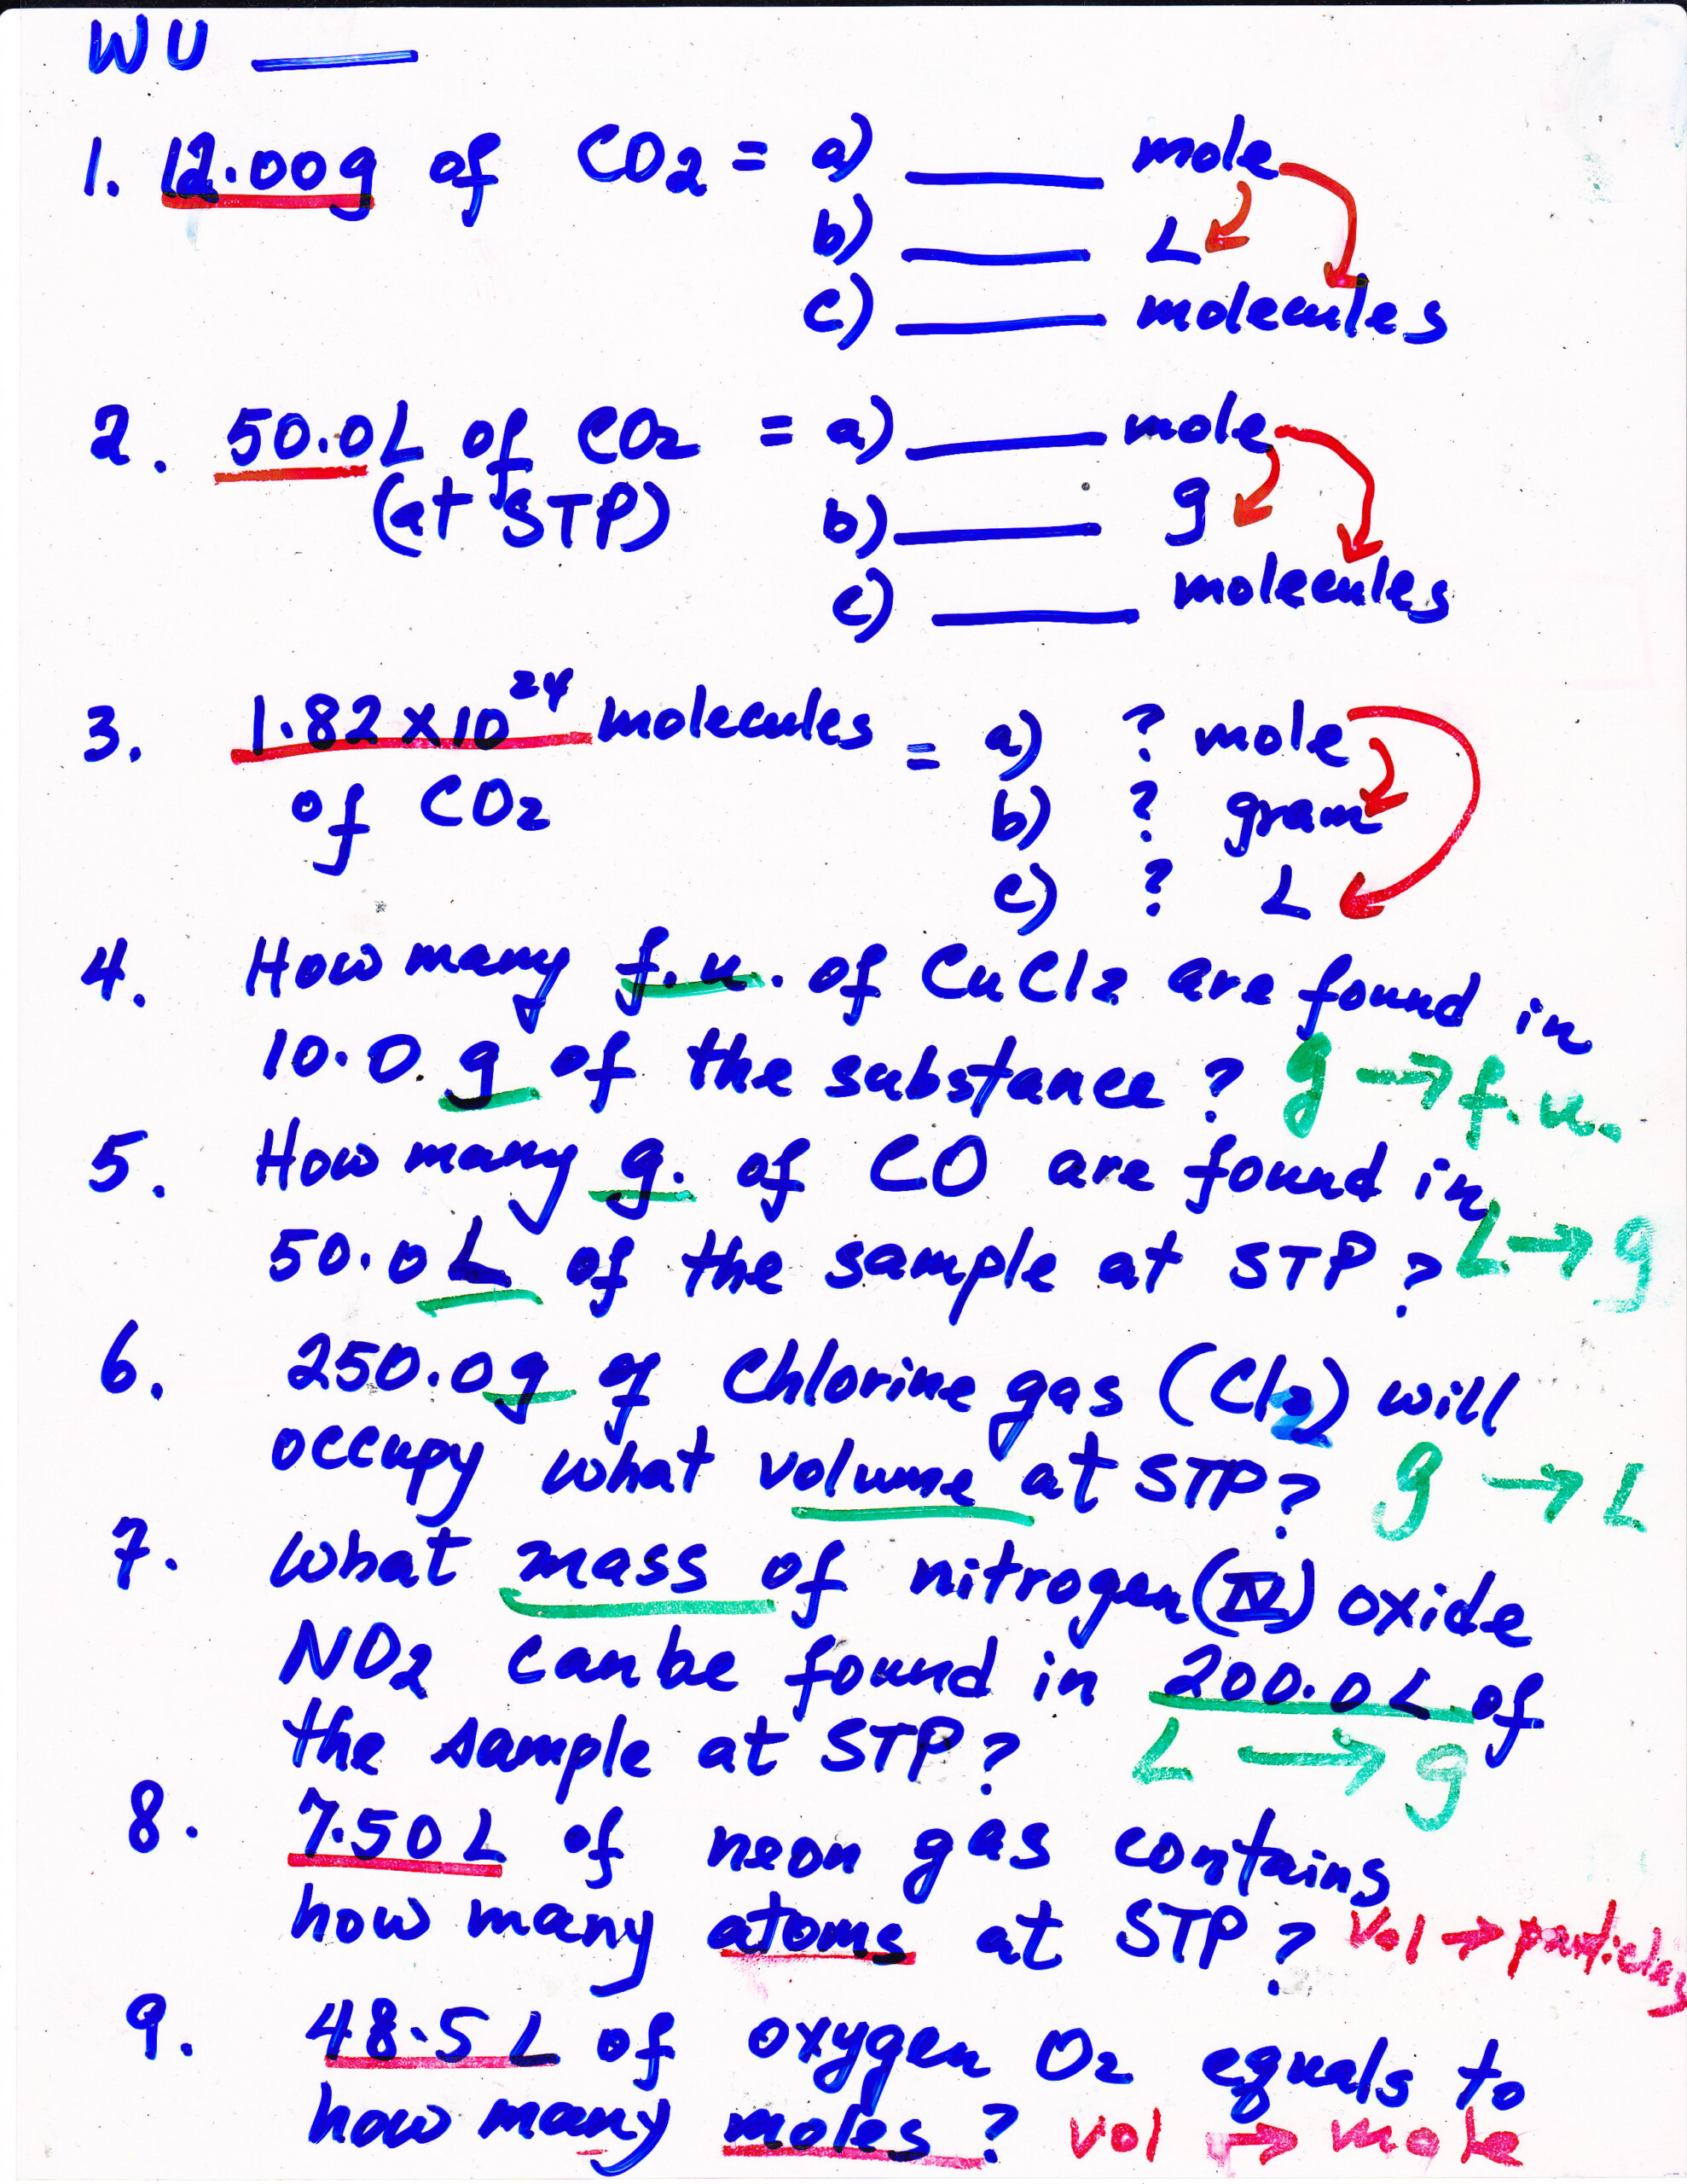 WU ____
1. 12.00g of CO2 = a) ____ mole
b) ____ L
c) ____ molecules
2. 50.0L of CO2 = a) ____ mole
(at STP) b) ____ g
c) ____ molecules
3. 1.82 x 10^24 molecules = a) ? mole
of CO2 b) ? gram
c) ? L
4. How many f.u. of CuCl2 are found in
10.0 g of the substance? g → f.u.
5. How many g. of CO are found in
50.0 L of the sample at STP? L → g
6. 250.0g of Chlorine gas (Cl2) will
occupy what volume at STP? g → L
7. What mass of nitrogen(IV) oxide
NO2 can be found in 200.0L of
the sample at STP? L → g
8. 7.50L of neon gas contains
how many atoms at STP? Vol → particles
9. 48.5 L of oxygen O2 equals to
how many moles? vol → mole